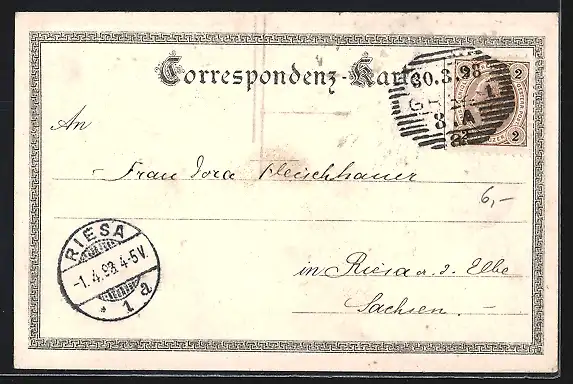 Correspondenz-Karte
30.3.98
8.A
2
2
An
Frau Dora Fleischhauer
6,-
RIESA
-1.4.98.4-5V.
* 1 a
in Riesa a. d. Elbe
Sachsen.-